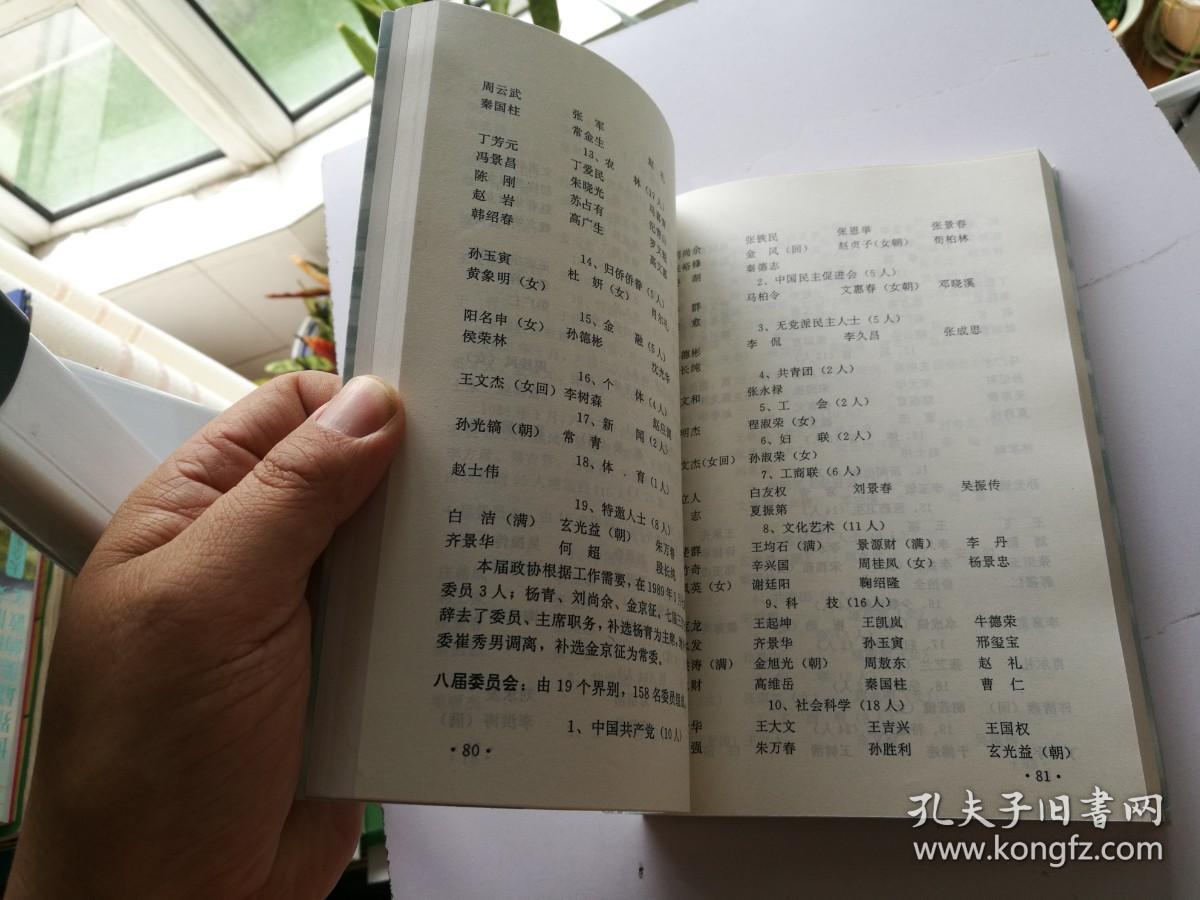 周云武 张 军
秦国柱 常金生 赵 礼
13、农 林（17人）
丁芳元 丁爱民
冯景昌 朱晓光
陈 刚 苏占有
赵 岩 高广生
韩绍春
14、归侨侨眷（5人）
孙玉寅 杜 妍（女） 肖尔礼
黄象明（女）
15、金 融（5人）
阳名申（女） 孙德彬 沈光华
侯荣林
16、个 体（4人）
王文杰（女回） 李树森
17、新 闻（2人）
孙光镐（朝） 常 青
18、体 育（1人）
赵士伟
19、特邀人士（8人）
白 洁（满） 玄光益（朝） 朱万春
齐景华 何 超 段长纯
本届政协根据工作需要，在1989年1月
委员3人；杨青、刘尚余、金京征。七届三
辞去了委员、主席职务，补选杨青为主席，
委崔秀男调离，补选金京征为常委。
八届委员会：由19个界别，158名委员组成
1、中国共产党（10人）
·80·
尚余 张铁民 张恩举 张景春
裕锋 金 凤（回） 赵贞子（女朝） 荀柏林
胡 秦德志
2、中国民主促进会（5人）
群 马柏令 文惠春（女朝） 邓晓溪
愈
3、无党派民主人士（5人）
德彬 李 侃 李久昌 张成思
长纯
4、共青团（2人）
文和 张永禄
5、工 会（2人）
明杰 程淑荣（女）
6、妇 联（2人）
文杰（女回） 孙淑荣（女）
7、工商联（6人）
立人 白友权 刘景春 吴振传
志 夏振第
8、文化艺术（11人）
群 王均石（满） 景源财（满） 李 丹
奇 辛兴国 周桂凤（女） 杨景忠
英（女） 谢廷阳 鞠绍隆
9、科 技（16人）
龙 王起坤 王凯岚 牛德荣
发 齐景华 孙玉寅 邢玺宝
涛（满） 金旭光（朝） 周敖东 赵 礼
财 高维岳 秦国柱 曹 仁
10、社会科学（18人）
华 王大文 王吉兴 王国权
强 朱万春 孙胜利 玄光益（朝）
·81·
孔夫子旧书网
www.kongfz.com